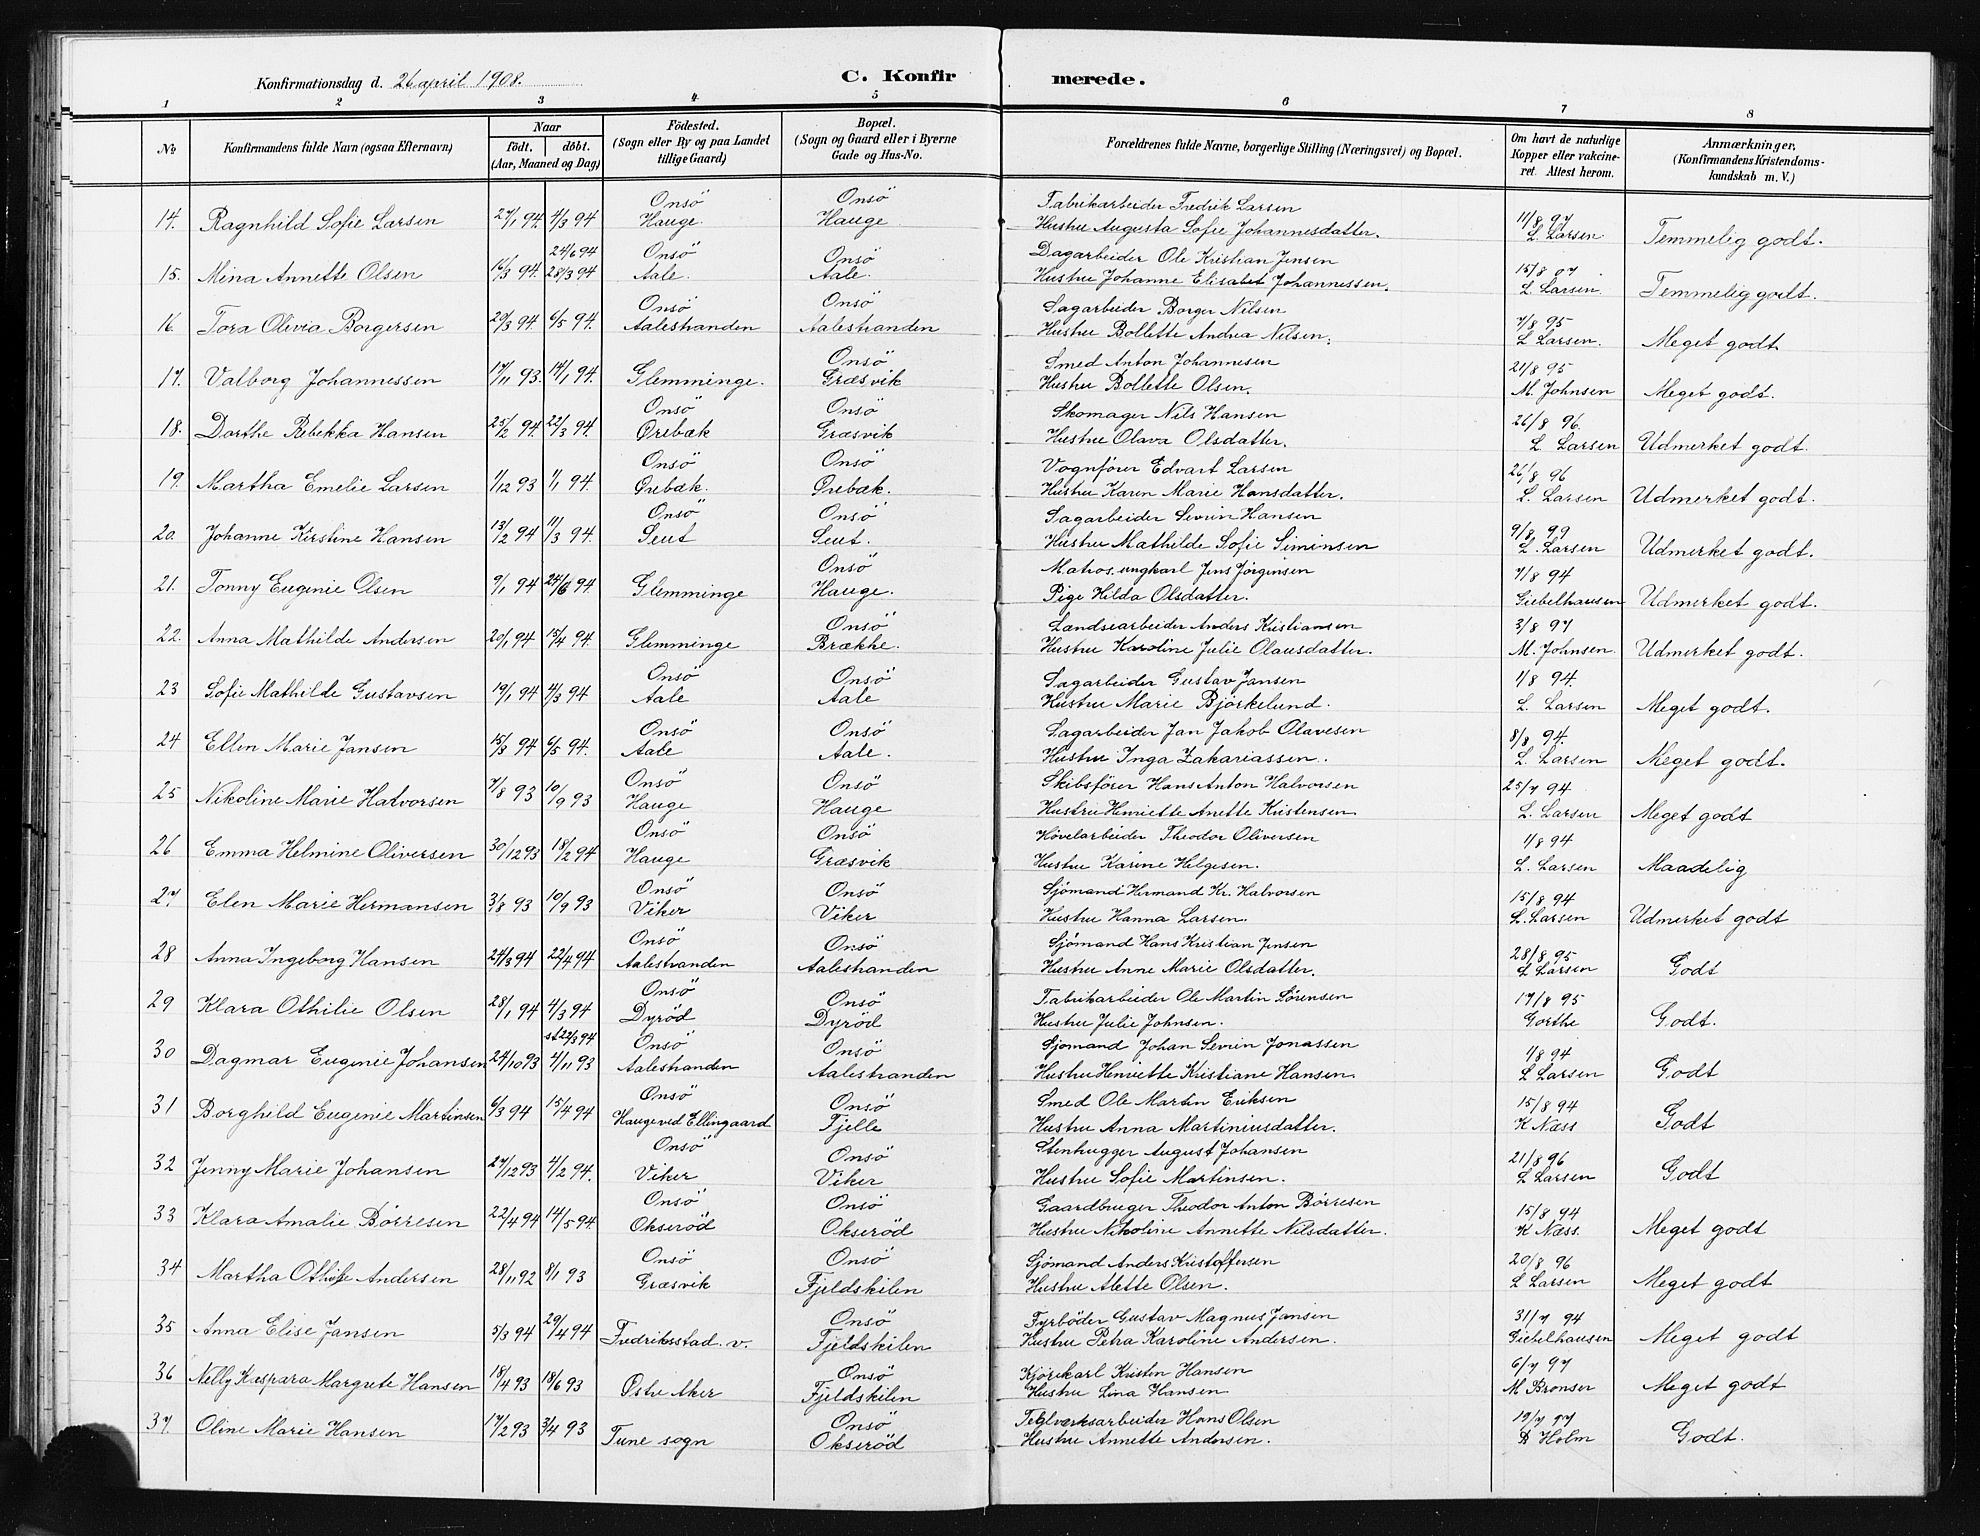 Konfirmationsdag d. 26 april 1908. C. Konfirmerede.
1 2 3 4 5 6 7 8
№ Konfirmandens fulde Navn (ogsaa Efternavn) Naar födt. döbt. (Aar, Maaned og Dag) Födested. (Sogn eller By og paa Landet tillige Gaard) Bopæl. (Sogn og Gaard eller i Byerne Gade og Hus-No.) Forældrenes fulde Navne, borgerlige Stilling (Næringsvei) og Bopæl. Om havt de naturlige Kopper eller vakcineret. Attest herom. Anmærkninger, (Konfirmandens Kristendomskundskab m. V.)
Onsö Onsö Fabrikarbeider Fredrik Larsen 11/8 97
14. Ragnhild Sofie Larsen 27/1 94. 4/3 94 Hauge. Hauge Hustru Augusta Sofie Johannesdatter. L. Larsen Temmelig godt.
24/6 94 Onsö Onsö Dagarbeider Ole Kristian Jensen 15/8 97
15. Meina Annette Olsen 16/3 94. 28/3 94 Aale. Aale. Hustru Johanne Elisabet Johannessen. L. Larsen. Temmelig godt.
Onsö Onsö Sagarbeider Borger Nilsen 7/8 95
16. Tora Olivia Borgersen 29/3 94. 6/5 94. Aalestranden Aalestranden Hustru Bollette Andrea Nilsen. L Larsen. Meget godt
Onsö Smed Anton Johannesen 21/8 95
17. Valborg Johannessen 17/11 93. 14/1 94. Glemminge. Græsvik Hustru Bollette Olsen. M. Johnsen Meget godt.
Onsö Onsö Skomager Nils Hansen 26/8 96.
18. Dorthe Rebekka Hansen 25/2 94. 22/3 94. Örebæk Græsvik Hustru Olava Olsdatter. L. Larsen Udmerket godt.
Onsö Onsö Vognfører Edvart Larsen 26/8 96
19. Martha Emelie Larsen 1/12 93 1/1 94. Örebæk. Örebæk. Hustru Karen Marie Hansdatter. L. Larsen Udmerket godt.
Onsö Onsö Sagarbeider Sevrin Hansen 9/8 99
20. Johanne Kirstine Hansen 13/2 94 11/3 94. Seut Seut. Hustru Mathilde Sofie Siminsen L. Larsen Udmerket godt.
Onsö Matros. ungkarl Jens Jørgensen 7/8 94
21. Tonny Eugenie Olsen 9/1 94 24/6 94. Glemminge Hauge. Pige Hilda Olsdatter. Giebelhausen Udmerket godt.
Onsö Landsearbeider Anders Kristiansen 3/8 97
22. Anna Mathilde Andersen 20/1 94 15/4 94. Glemminge Brække. Hustru Karoline Julie Olausdatter. M. Johnsen. Udmerket godt.
Onsö Onsö Sagarbeider Gustav Jansen 1/8 94.
23 Sofie Mathilde Gustavsen 19/1 94 4/3 94 Aale Aale Hustru Marie Björkelund. L. Larsen Meget godt.
Onsö Onsö Sagarbeider Jan Jakob Olavesen 8/8 94.
24 Ellen Marie Jansen 15/3 94 6/5 94. Aale Aale. Hustru Inga Zakariassen. L. Larsen Meget godt.
Onsö Onsö Skibsfører Hans Anton Halvorsen 25/7 94
25 Nikoline Marie Halvorsen 7/8 93 10/9 93 Hauge Hauge Hustru Henriette Anette Kristensen L. Larsen Meget godt
Onsö Onsö Hövelarbeider Theodor Oliversen 1/8 94
26 Emma Helmine Oliversen 30/12 93 18/2 94 Hauge Græsvik Hustru Karine Helgesen. L. Larsen Maadelig
Onsö Onsö Sjömand Hermand Kr. Halvorsen 15/8 94
27. Elen Marie Hermansen 3/8 93 10/9 93 Viker Viker Hustru Hanna Larsen. L. Larsen Udmerket godt
Onsö Onsö Sjömand Hans Kristian Jensen 28/8 95
28 Anna Ingeborg Hansen 24/3 94 22/4 94 Aalestranden Aalestranden Hustru Anne Marie Olsdatter. L Larsen Godt
Onsö Onsö Fabrikarbeider Ole Martin Sörensen 17/8 95
29 Klara Othilie Olsen 28/1 94 4/3 94 Dyröd Dyröd Hustru Julie Johnsen. Gorthe Godt.
st 22/3 94 Onsö Onsö Sjömand Johan Sevrin Jonassen 1/8 94
30 Dagmar Eugenie Johansen 24/10 93 4/11 93 Aalestranden Aalestranden Hustru Henriette Kristiane Hansen. L Larsen Godt
Onsö Onsö Smed Ole Martin Eriksen 15/8 94
31 Borghild Eugenie Martinsen 6/3 94 15/4 94 Hauge ved Ellingaard Fjelle Hustru Anna Martiniusdatter. K Næss Godt
Onsö Onsö Stenhugger August Johansen 21/8 96
32 Jenny Marie Johansen 27/12 93 4/2 94. Viker Viker Hustru Sofie Martinsen. L Larsen Godt
Onsö Onsö Gaardbruger Theodor Anton Börresen 15/8 94
33 Klara Amalie Börresen 22/4 94 14/5 94. Okseröd Okseröd Hustru Nikoline Annette Nilsdatter. K Næss. Meget godt
Onsö Onsö Sjömand Anders Kristoffersen 20/8 96
34 Martha Othilie Andersen 28/11 92 8/1 93 Græsvik Fjeldskilen Hustru Alette Olsen. L Larsen Meget godt
Onsö Fyrböder Gustav Magnus Jansen 31/7 94
35 Anna Elise Jansen 5/3 94 29/4 94 Fredriksstad. v. Fjeldskilen Hustru Petra Karoline Andersen. Giebelhausen Meget godt
Onsö Kjörekarl Kristen Hansen 6/7 97
36 Nelly Kaspara Margrete Hansen 18/4 93 18/6 93 Østre Aker Fjeldskilen Hustru Lina Hansen M Bronser Meget godt
Onsö Teglværksarbeider Hans Olsen 19/7 97
37. Oline Marie Hansen 17/2 93 3/4 93 Tune sogn Okseröd Hustru Annette Andersen. D Holm Godt.